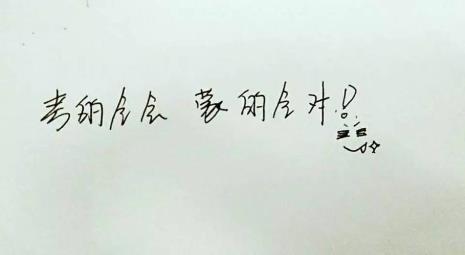 考的全会 蒙的全对!